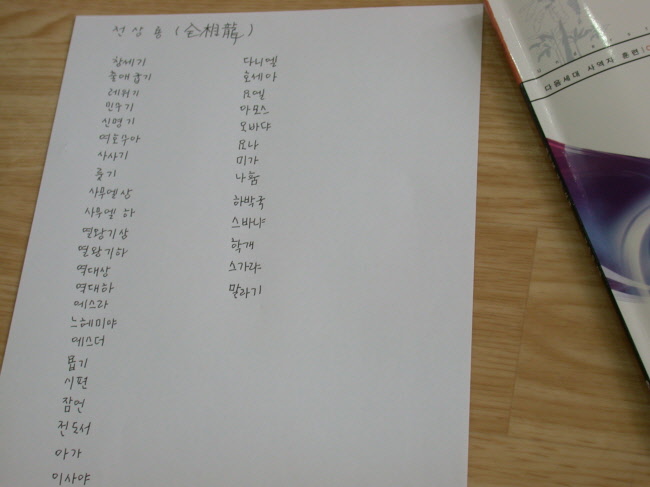 전상용 (全相龍)
창세기
출애굽기
레위기
민수기
신명기
여호수아
사사기
룻기
사무엘상
사무엘 하
열왕기상
열왕기하
역대상
역대하
에스라
느헤미야
에스더
욥기
시편
잠언
전도서
아가
이사야
다니엘
호세아
요엘
아모스
오바댜
요나
미가
나훔
하박국
스바냐
학개
스가랴
말라기
다음세대 사역자 훈련